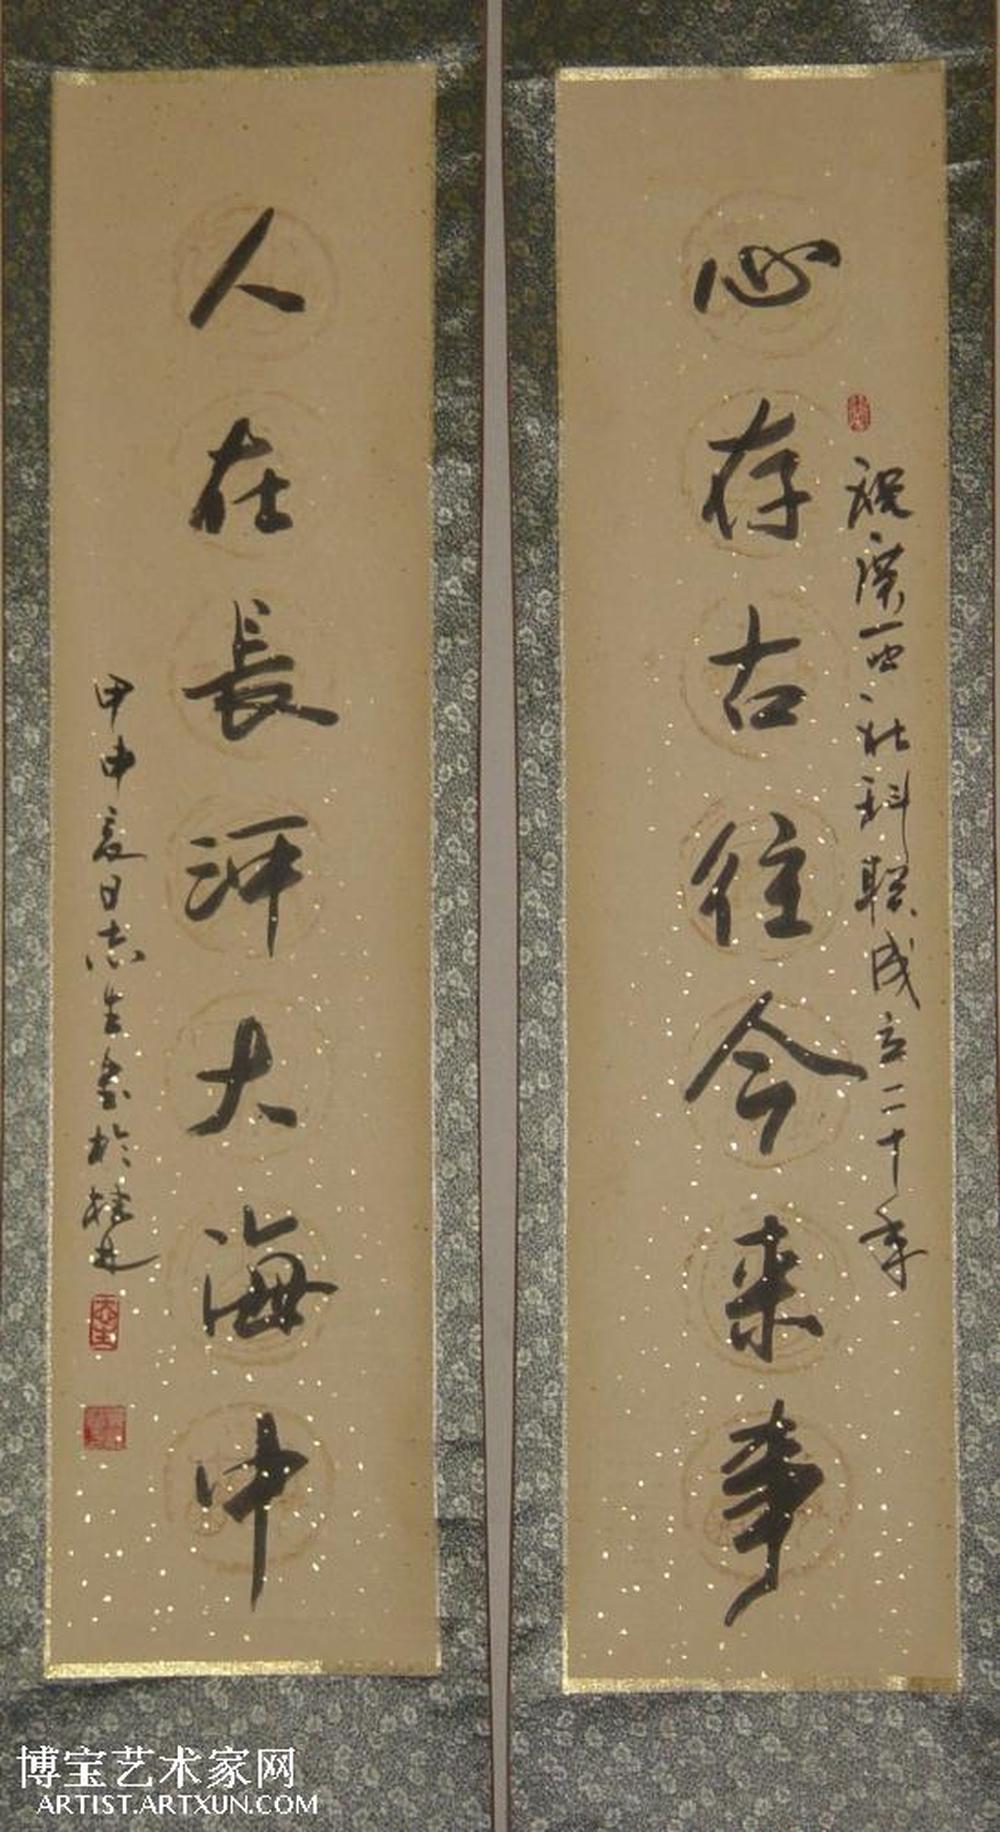 祝广西社科联成立二十年
心存古往今来事
人在長河大海中
甲申夏日志生书於桂林
博宝艺术家网
ARTIST.ARTXUN.COM